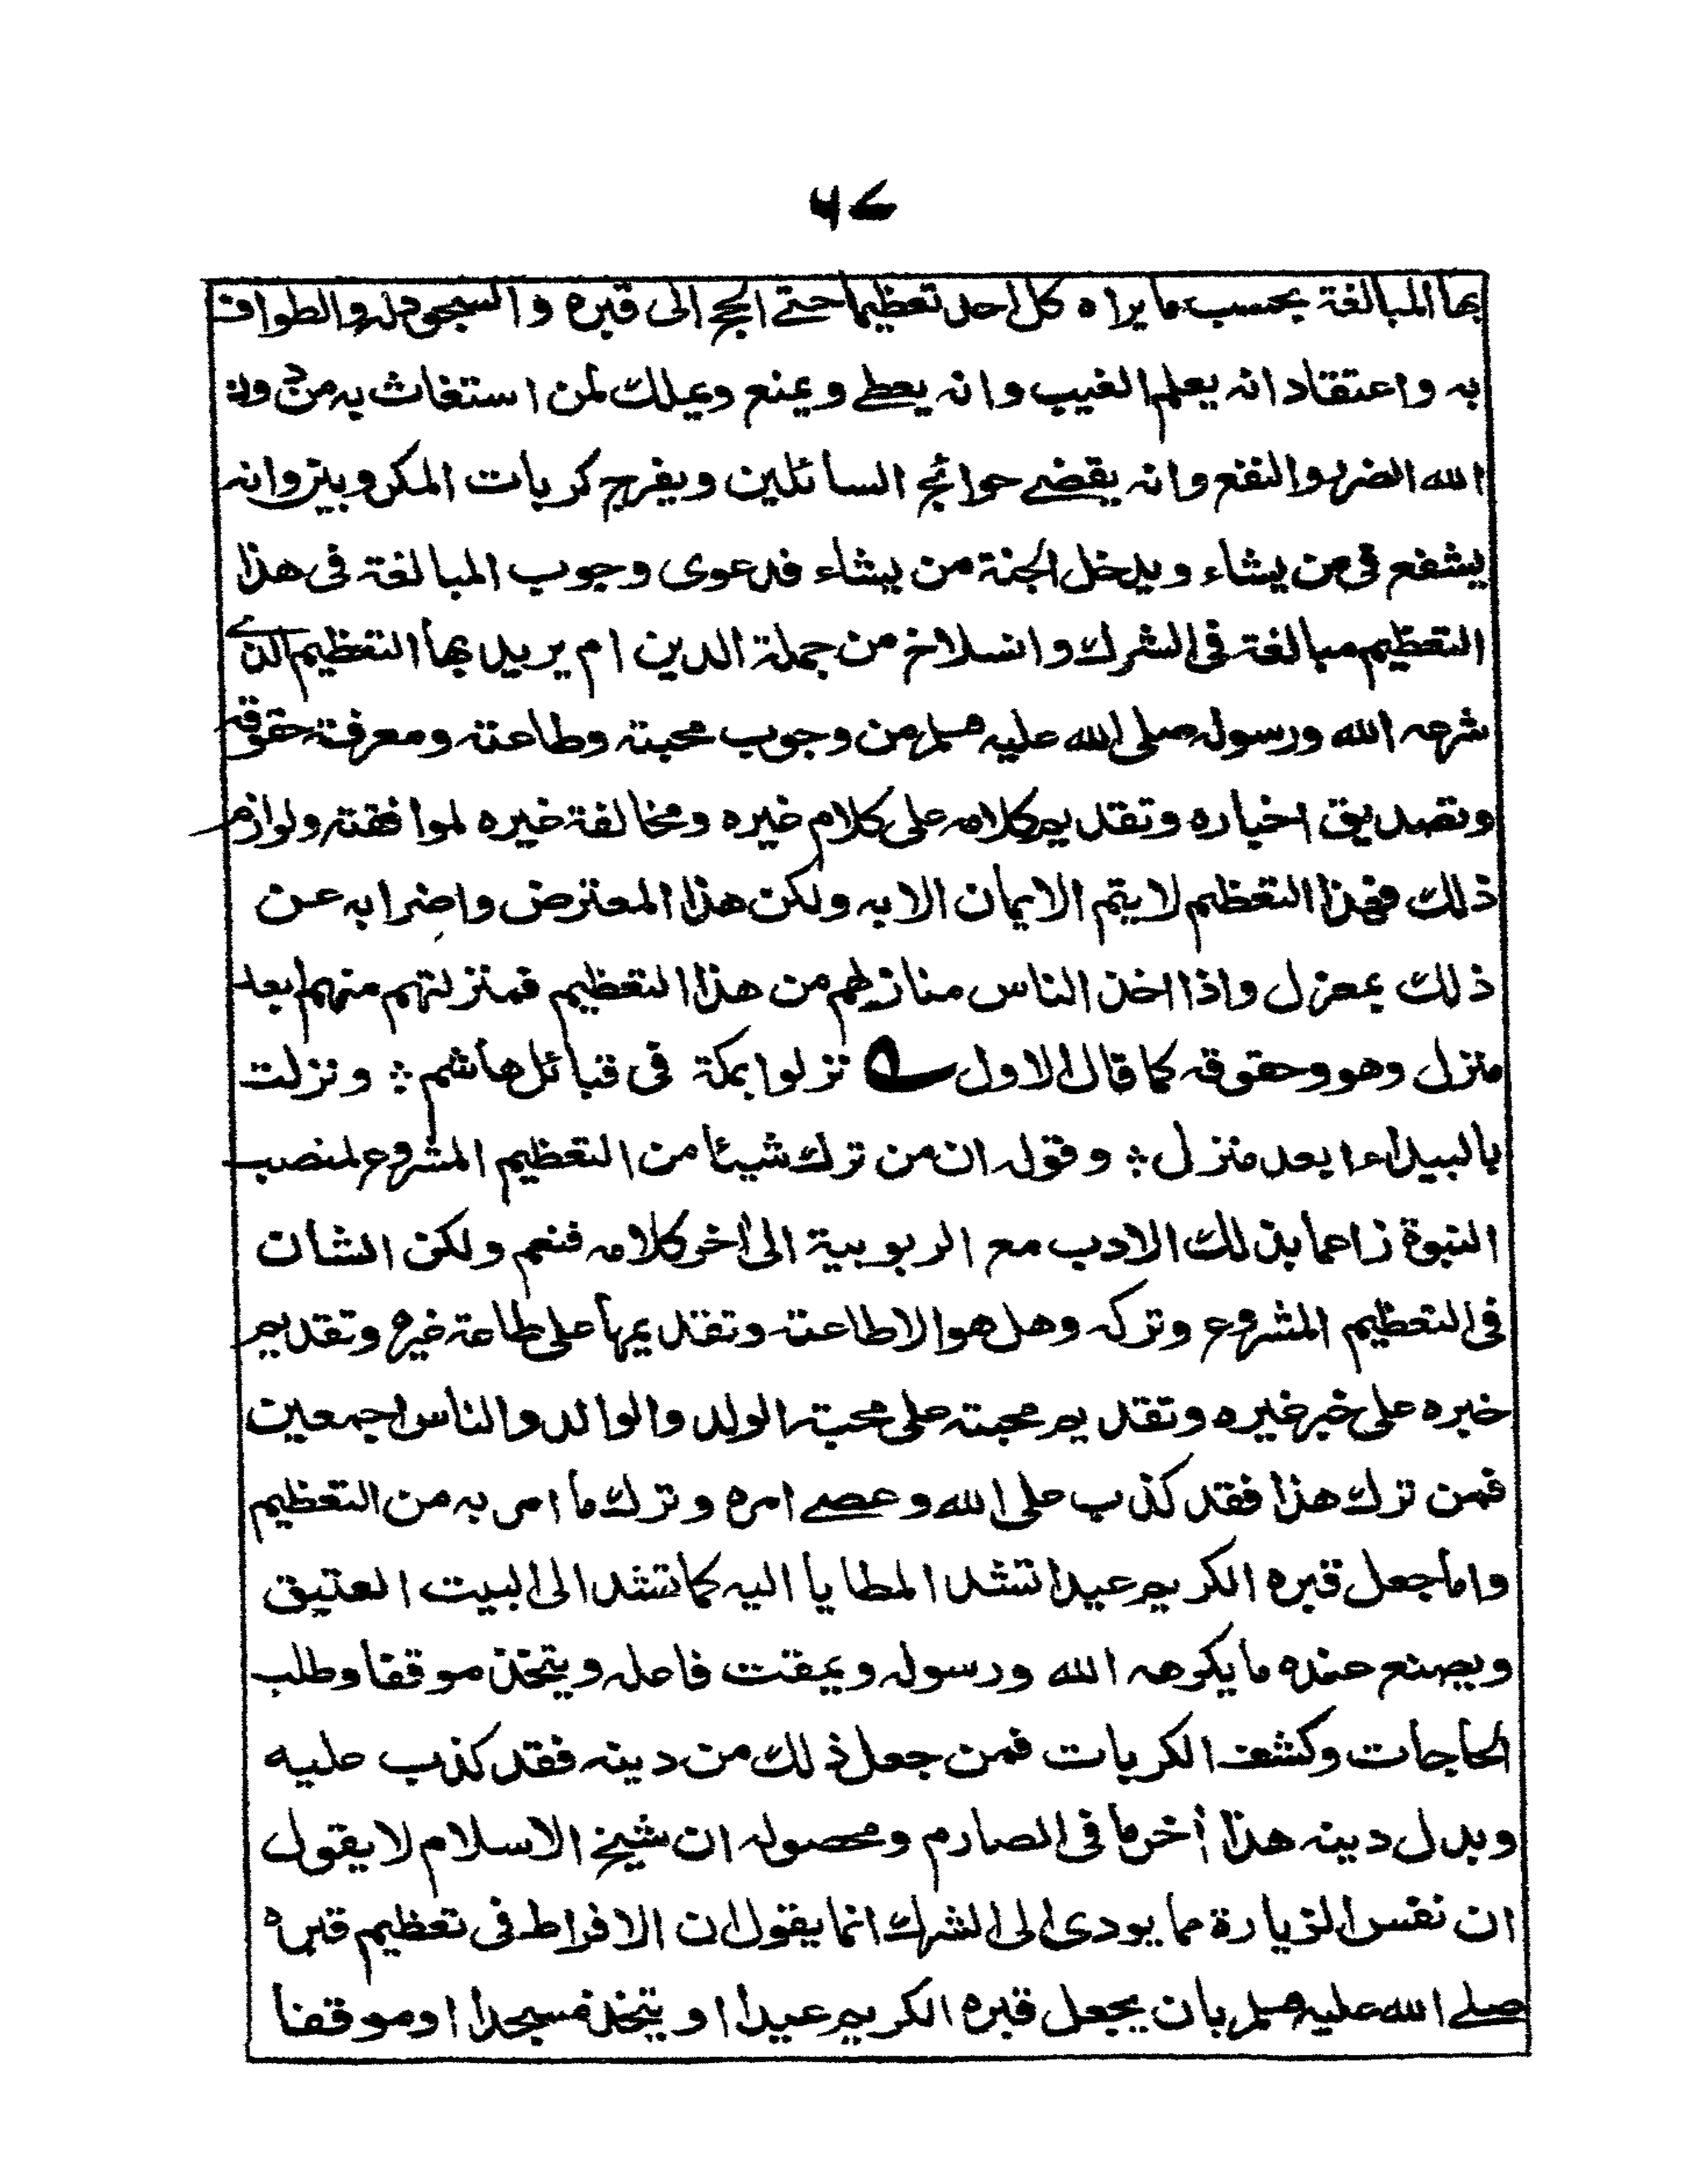 ۶۷
بها المبالغة بحسب ما يراه كل احد تعظيما حتے الحج الى قبره والسجود له والطواف
به واعتقاد انه يعلم الغيب وانه يعطے ويمنع ويملك لمن استغاث به من دون
الله الضر والنفع وانه يقضے حوائج السائلين ويفرج كربات المكروبين وانه
يشفع فى من يشاء ويدخل الجنة من يشاء فدعوى وجوب المبالغة فى هذا
التعظيم مبالغة فى الشرك وانسلاخ من جملة الدين ام يريد بها التعظيم الذے
شرعه الله ورسوله صلى الله عليه وسلم من وجوب محبته وطاعته ومعرفة حقوقه
وتصديق اخباره وتقديم كلامه على كلام غيره ومخالفة غيره لموافقته ولوازم
ذلك فهذا التعظيم لا يتم الايمان الا به ولكن هذا المعترض واضرابه عن
ذلك بمعزل واذا اخذ الناس منازلهم من هذا التعظيم فمنزلتهم منهم ابعد
منزل وهو وحقوقه كما قال الاول ؎ نزلوا بمكة فى قبائل هاشم ؞ ونزلت
بالبيداء ابعد منزل ؞ وقوله ان من ترك شيئا من التعظيم المشروع لمنصب
النبوة زاعما بذلك الادب مع الربوبية الى اخر كلامه فنعم ولكن الشان
فى التعظيم المشروع وتركه وهل هو الا طاعته وتقديمها على طاعة غيره وتقديم
خبره على خبر غيره وتقديم محبته على محبة الولد والوالد والناس اجمعين
فمن ترك هذا فقد كذب على الله وعصے امره وترك ما امر به من التعظيم
واما جعل قبره الكريم عيدا تشد المطايا اليه كما تشد الى البيت العتيق
ويصنع عنده ما يكرهه الله ورسوله ويمقت فاعله ويتخذ موقفا وطلب
الحاجات وكشف الكربات فمن جعل ذلك من دينه فقد كذب عليه
وبدل دينه هذا أخر ما فى الصارم ومحصوله ان شيخ الاسلام لا يقول
ان نفس الزيارة مما يودى الى الشرك انما يقول ان الافراط فى تعظيم قبره
صلے الله عليه وسلم بان يجعل قبره الكريم عيدا او يتخذ مسجدا او موقفا